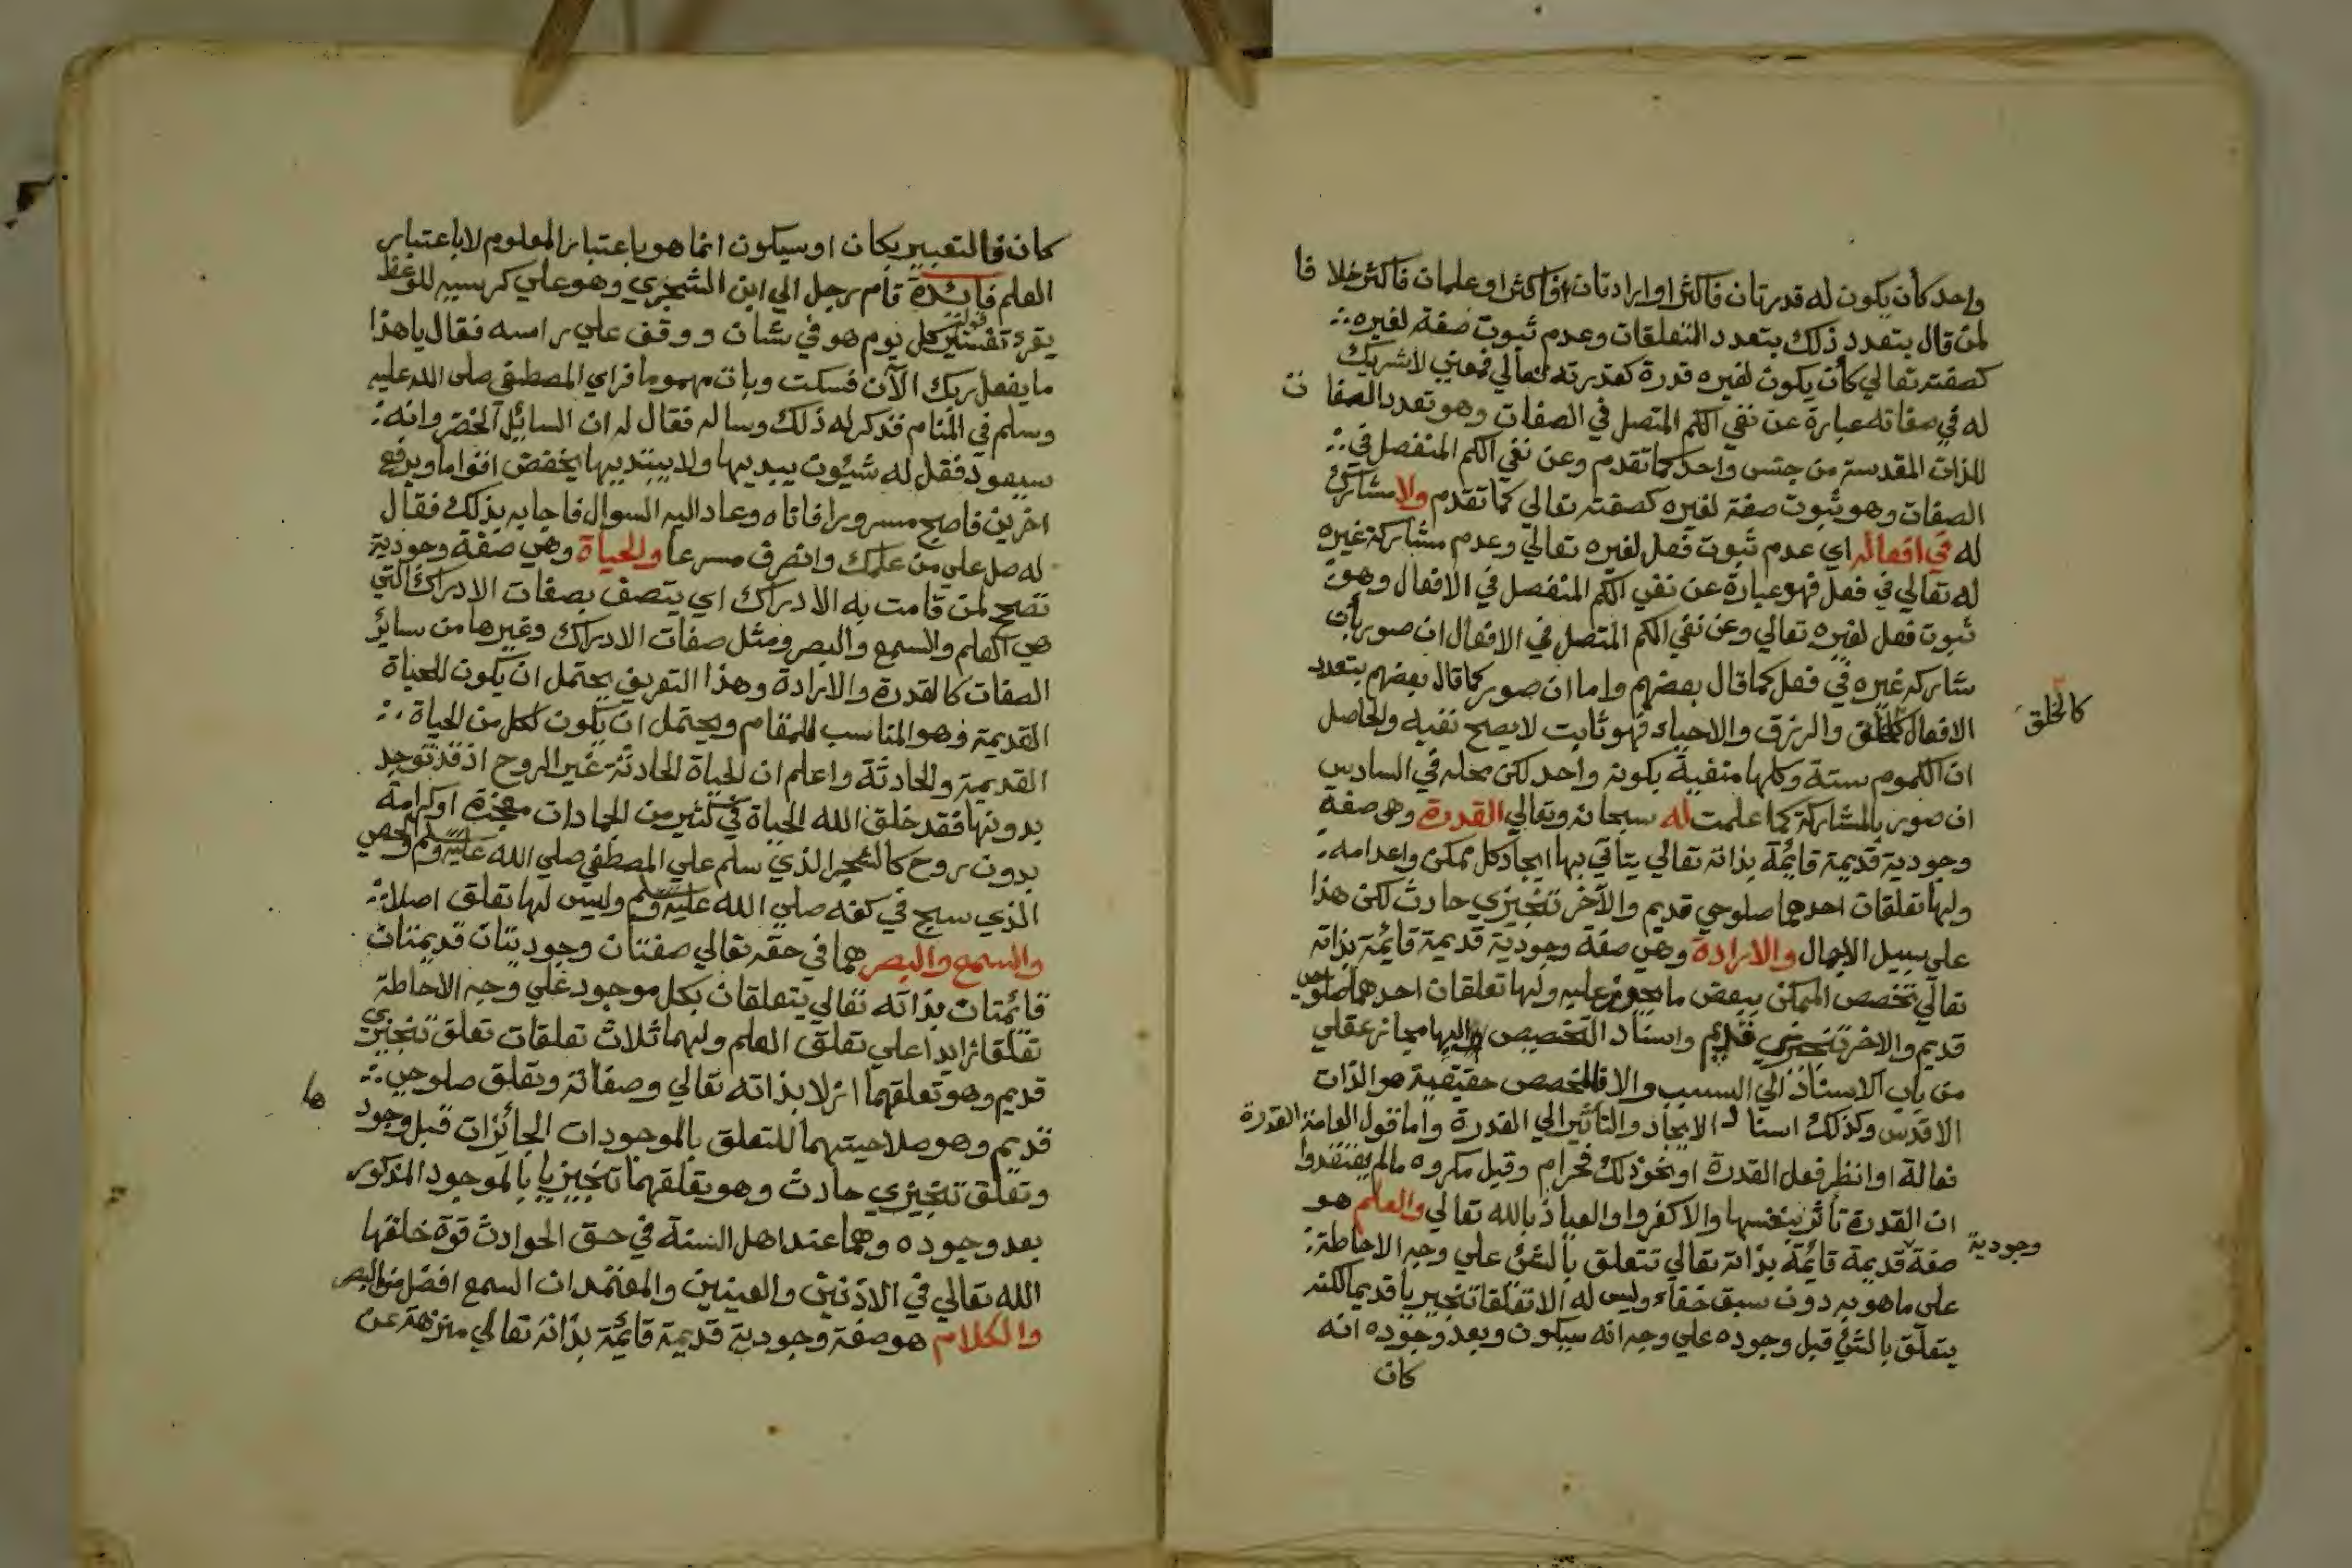 واحد كأن يكون له قدرتان فاكثر او ارادتان فاكثر او علمان فاكثر خلافا
لمن قال بتعدد ذلك بتعدد المتعلقات وعدم ثبوت صفة لغيره
كصفته تعالي كأن يكون لغيره قدرة كقدرته تعالي فمعني لا شريك
له في صفاته عبارة عن نفي الكم المتصل في الصفات وهو تعدد الصفات
للذات المقدسة من جنس واحد كما تقدم وعن نفي الكم المنفصل في
الصفات وهو ثبوت صفة لغيره كصفته تعالي كما تقدم ولا مشارك
له في افعاله اي عدم ثبوت فعل لغيره تعالي وعدم مشاركة غيره
له تعالي في فعل فهو عبارة عن نفي الكم المنفصل في الافعال وهو
ثبوت فعل لغيره تعالي وعن نفي الكم المتصل في الافعال ان صور بأن
شاركه غيره في فعل كما قال بعضهم واما ان صور كما قال بعضهم بتعدد
الافعال كالخلق والرزق والاحياء فهو ثابت لا يصح نفيه والحاصل
كالخلق
ان الكموم ستة وكلها منفية بكونه واحد لكن محله في السادس
ان صور بالمشاركة كما علمت له سبحانه وتعالي القدرة وهي صفة
وجودية قديمة قائمة بذاته تعالي يتأتي بها ايجاد كل ممكن واعدامه
ولها تعلقات احدهما صلوحي قديم والآخر تنجيزي حادث لكن هذا
علي سبيل الاجمال والارادة وهي صفة وجودية قديمة قائمة بذاته
تعالي تخصص الممكن ببعض ما يجوز عليه ولها تعلقات احدهما صلوحي
قديم والاخر تنجيزي قديم واسناد التخصيص اليها مجاز عقلي
من باب الاسناد الي السبب والا فالمخصص حقيقية هو الذات
الاقدس وكذلك اسناد الايجاد والتأثير الي القدرة واما قول العامة القدرة
فعالة او انظر فعل القدرة او نحو ذلك فحرام وقيل مكروه ما لم يعتقدوا
ان القدرة تأثر بنفسها والا كفروا والعياذ بالله تعالي والعلم هو
صفة قديمة قائمة بذاته تعالي تتعلق بالشئ علي وجه الاحاطة
وجودية
علي ما هو به دون سبق خفاء وليس له الا تعلقا تنجيزيا قديما لكنه
يتعلق بالشئ قبل وجوده علي وجه انه سيكون وبعد وجوده انه
كان
كان فالتعبير بكان او سيكون انما هو باعتبار المعلوم لا باعتبار
العلم فائدة قام رجل الي ابن الشجري وهو علي كرسيه للوعظ
يقرء تفسير قوله كل يوم هو في شان ووقف علي راسه فقال يا هذا
ما يفعل ربك الآن فسكت وبات مهموما فراي المصطفي صلي الله عليه
وسلم في المنام فذكر له ذلك وساله فقال له ان السائل الخضر وانه
سيعود فقل له شئون يبديها ولا يبتديها يخفض اقواما ويرفع
اخرين فاصبح مسرورا فاتاه وعاد اليه السوال فاجابه بذلك فقال
له صل علي من علمك وانصرف مسرعا والحياة وهي صفة وجودية
تصحح لمن قامت به الادراك اي يتصف بصفات الادراك التي
هي العلم والسمع والبصر ومثل صفات الادراك وغيرها من سائر
الصفات كالقدرة والارادة وهذا التعريف يحتمل ان يكون للحياة
القديمة وهو المناسب للمقام ويحتمل ان يكون لكل من الحياة
القديمة والحادثة واعلم ان الحياة الحادثة غير الروح اذ قد توجد
بدونها فقد خلق الله الحياة في كثير من الجمادات معجزة او كرامة
بدون روح كالشجر الذي سلم علي المصطفي صلي الله عليه وسلم والحصي
الذي سبح في كفه صلي الله عليه وسلم وليس لها تعلق اصلا
والسمع والبصر هما في حقه تعالي صفتان وجوديتان قديمتان
قائمتان بذاته تعالي يتعلقان بكل موجود علي وجه الاحاطة
تعلقا زايدا علي تعلق العلم ولهما ثلاث تعلقات تعلق تنجيزي
قديم وهو تعلقهما ازلا بذاته تعالي وصفاته وتعلق صلوحي
قديم وهو صلاحيتهما للتعلق بالموجودات الجائزات قبل وجودها
وتعلق تنجيزي حادث وهو تعلقهما تنجيزيا بالموجود المذكور
بعد وجوده وهما عند اهل السنة في حق الحوادث قوة خلقها
الله تعالي في الاذنين والعينين والمعتمد ان السمع افضل من البصر
والكلام هو صفة وجودية قديمة قائمة بذاته تعالي منزهة عن